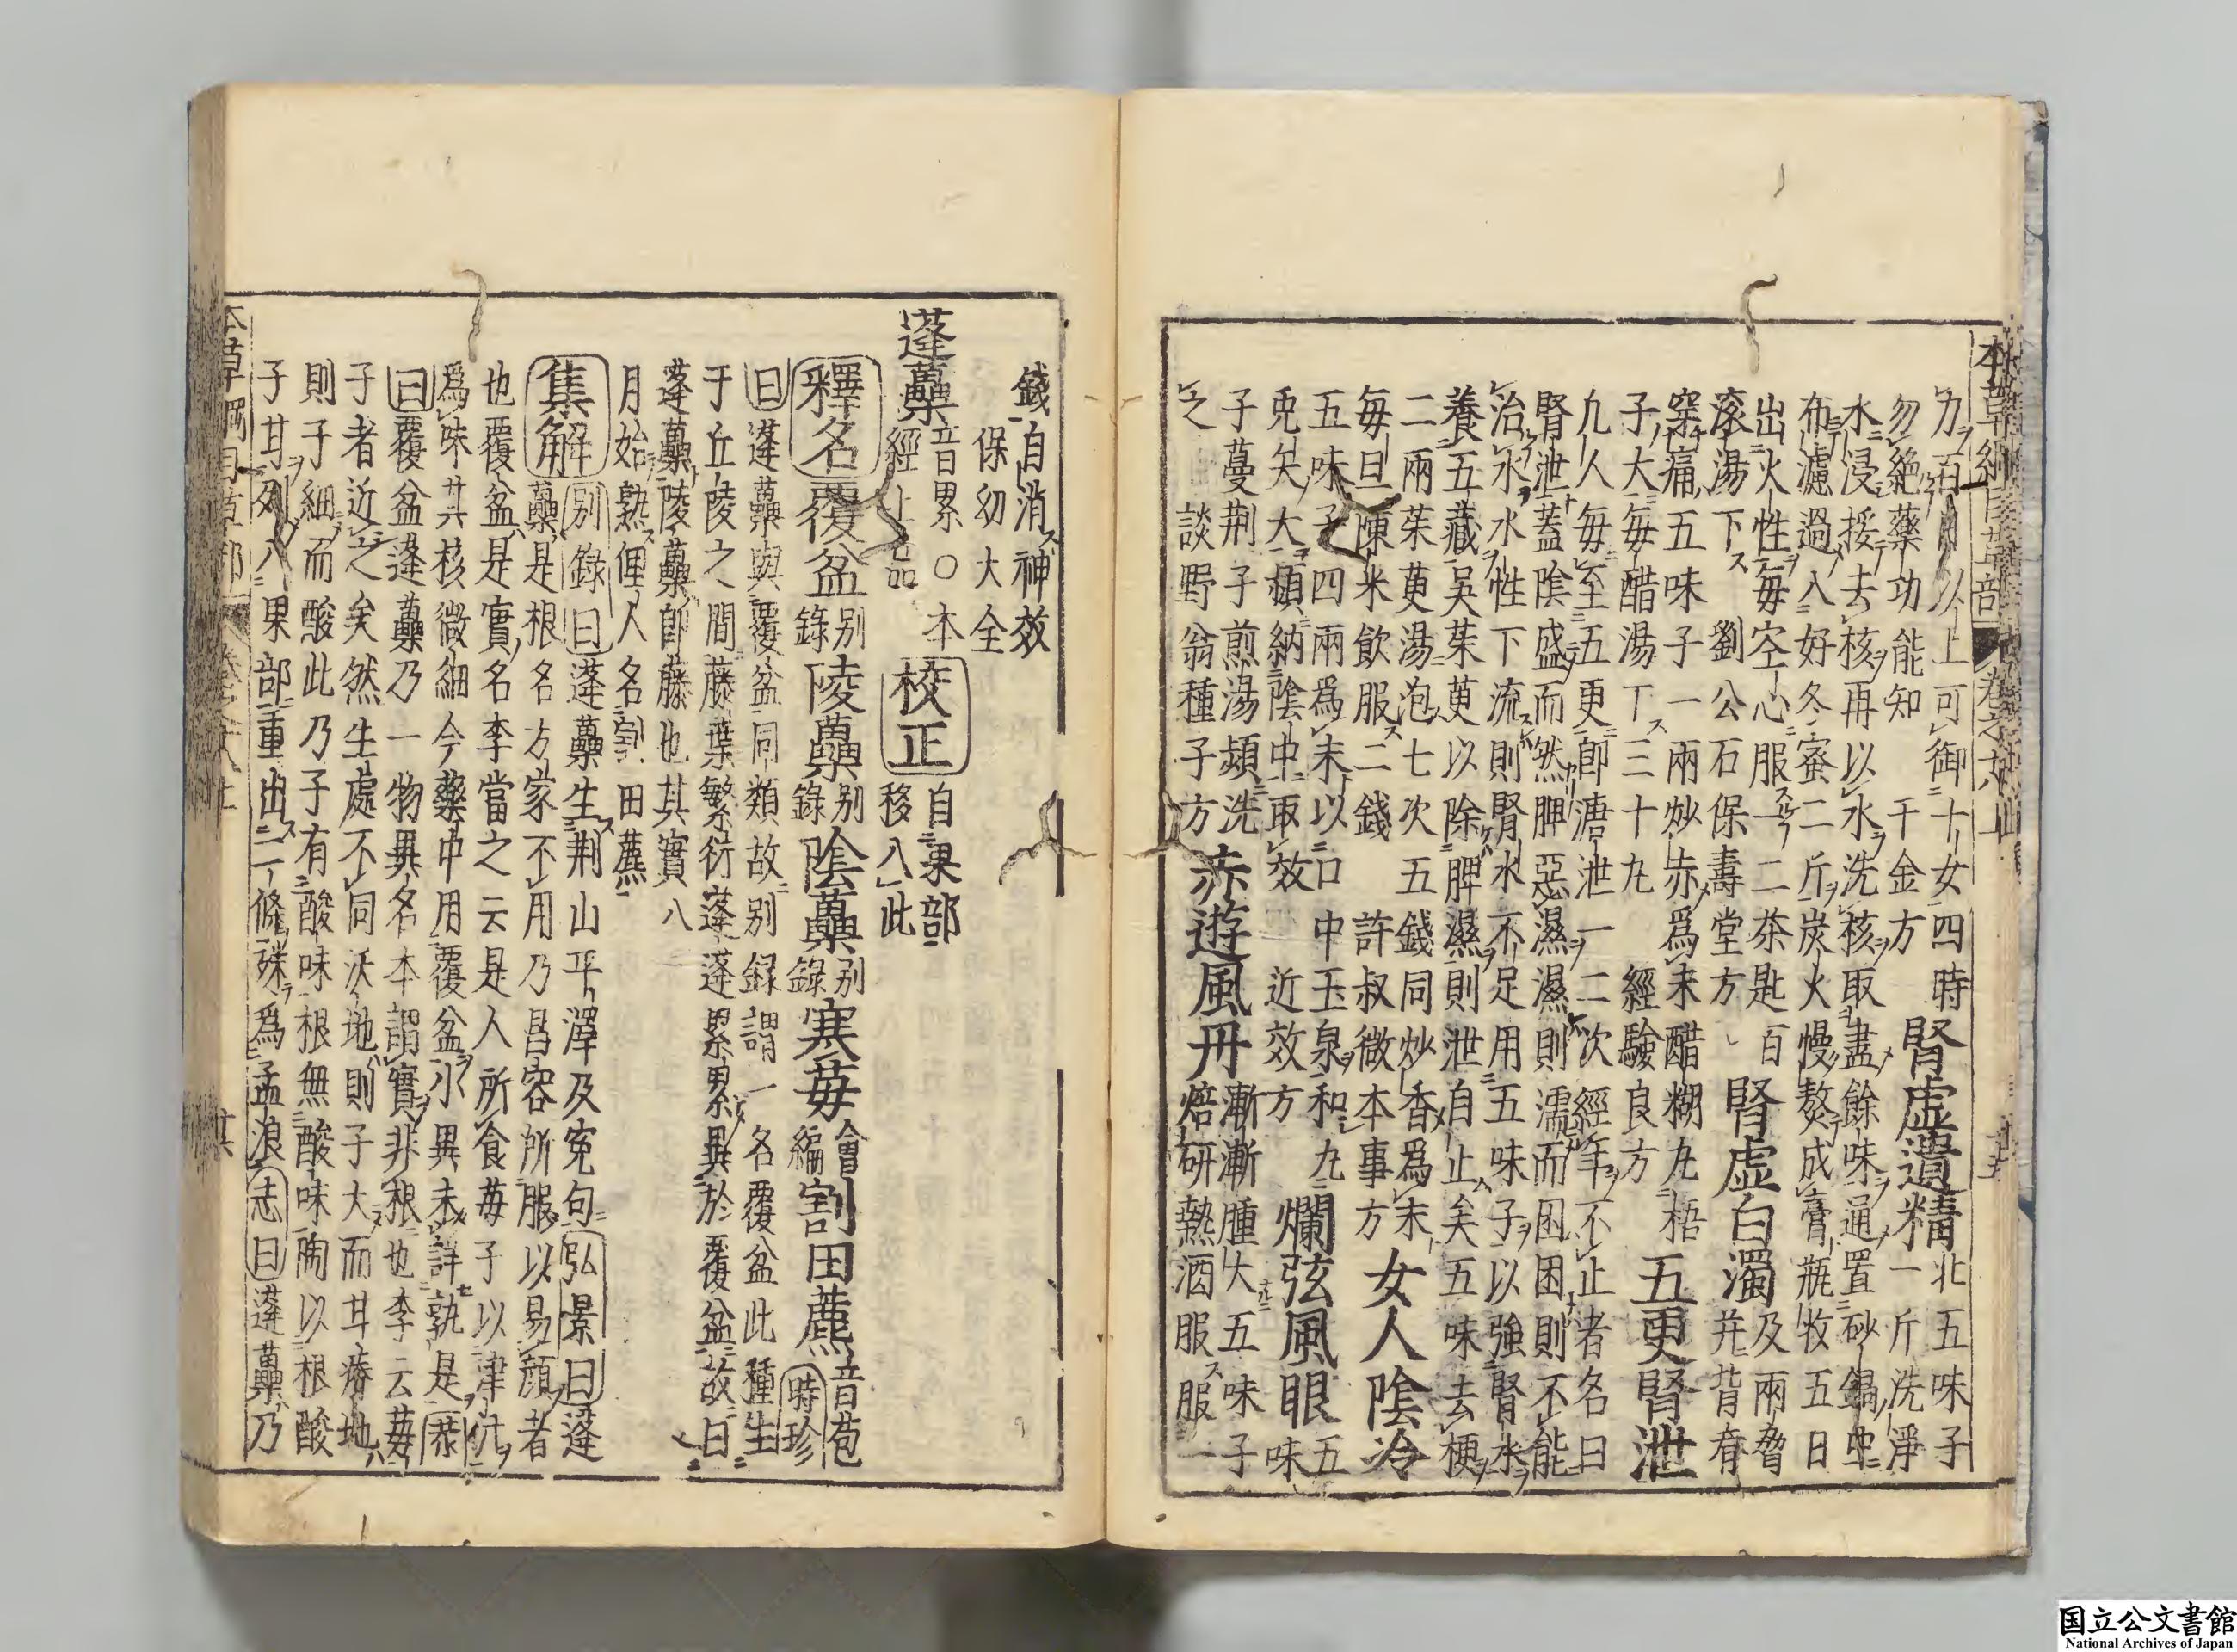 力百日以上可御十女四時 腎虚遺精 北五味子
勿絶藥功能知 千金方 一斤洗淨
水浸挼去核再以水洗核取盡餘味通置砂鍋中
布濾過入好冬蜜二斤炭火慢熬成膏瓶收五日
出火性毎空心服一二茶匙百
滚湯下 劉公石保壽堂方 腎虚白濁 及兩脅并背脊
穿痛五味子一兩炒赤爲末醋糊丸梧
子大毎醋湯丁三十丸 經驗良方 五更腎泄
九人毎至五更即溏泄一二次經年不止者名曰
腎泄蓋陰盛而然脾惡濕濕則濡而困困則不能
治水水性下流則腎水不足用五味子以強腎水
養五藏吳茱萸以除脾濕則泄自止矣五味去梗
二兩茱萸湯泡七次五錢同炒香爲末
毎旦陳米飲服二錢 許叔微本事方 女人陰冷
五味子四兩爲末以口中玉泉和丸
兎矢大頻納陰中取效 近效方 爛弦風眼 五味
子蔓荆子煎湯頻洗
之 談野翁種子方 赤遊風丹 漸漸腫大五味子
焙研熱酒服服一
本草綱目草部 卷之十八上
錢自消神效
保幼大全
蓬虆 音累○本經上品 校正 自果部移入此
釋名 覆盆 别錄 陵虆 别錄 陰虆 别錄 寒莓 會編 割田藨 音苞 時珍
曰蓬虆與覆盆同類故别録謂一名覆盆此種生
于丘陵之間藤葉繁衍蓬蓬累累異於覆盆故曰
蓬虆陵虆即藤也其實八
月始熟俚人名割田藨
集解 别錄曰蓬虆生荆山平澤及寃句弘景曰蓬
虆是根名方家不用乃昌容所服以易顔者
也覆盆是實名李當之云是人所食莓子以津汁
爲味其核微細今藥中用覆盆小異未詳孰是恭
曰覆盆蓬虆乃一物異名本謂實非根也李云莓
子者近之矣然生處不同沃地則子大而甘瘠地
則子細而酸此乃子有酸味根無酸味陶以根酸
子甘列入果部重出二條殊爲孟浪志曰蓬虆乃
本草綱目草部 卷之十八上
国立公文書館
National Archives of Japan